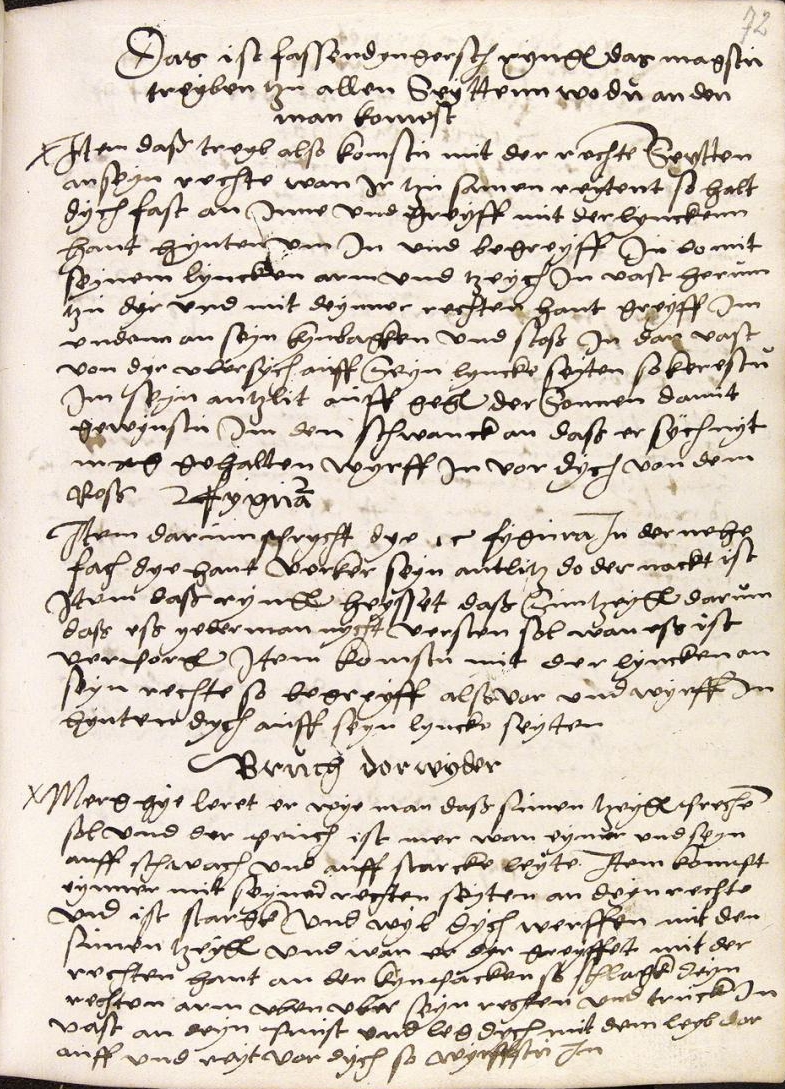 72
Das ist fassendyngersch ryngen das magstu
treyben tzu allen Seyttenn wo du an den
man komest
Item daß treyb also komstu mit der rechte Seytten
an seyn rechte wan Ir tzu samen reytent so halt
dych fast an Inne vnd greyff mit der lynckenn
hant hynten vm In vnd begreyff In do mit
seinem lyncken arm vnd tzeych In vast herum
tzu dyr vnd mit deynner rechten hant greyff Im
vnden an seyn kynbacken vnd stoß In dar vast
von dyr vbersych auff Seyn lyncke seyten so kerestu
Im seyn antzlit auff gegen der Sonnen damit
gewynstu Im den schwanck an daß er sych nyt
mag gehalten wyrff In vor dych von dem
Roß fygura
Item darum spricht dye fygura In der nehe
fach dye hant verker seyn antlitz do der nackt ist
Item daß ryngen heysset daß Sunnen tzeygen darum
daß eß yederman nycht versten sol wan eß ist
verporgen Item komstu mit der lyncken an
seyn rechte so begreyff alß vor vnd wyrff In
hynter dych auff seyn lyncke seyten
Bruch dorwyder
Merg hye leret er wye man daß sunen tzeygen prechen
sol vnd der pruch ist mer wan eynner vnd seyn
auff schwach vnd auff starcke leyte Item kompt
eynner mit seyner rechten seyten an deyn rechte
vnd ist starck vnd wyl dych werffen mit den
sunen tzeygen vnd wan er dyr greyffet mit der
rechten hant an den kynpacken so schlach deyn
rechten arm oben vber seyn rechten vnd truck In
vast an deyn prust vnd leg dych mit dem leyb dor
auff vnd reyt vor dych so wyrffstu In